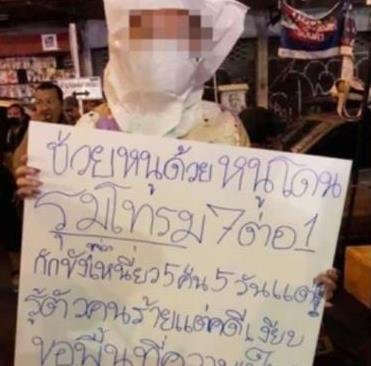 ช่วยหนูด้วยหนูโดน
รุมโทรม 7 ต่อ 1
กักขังหน่วงเหนี่ยว 5 คืน 5 วันแต่
รู้ตัวคนร้ายแต่คดีเงียบ
ขอพื้นที่ความเป็น